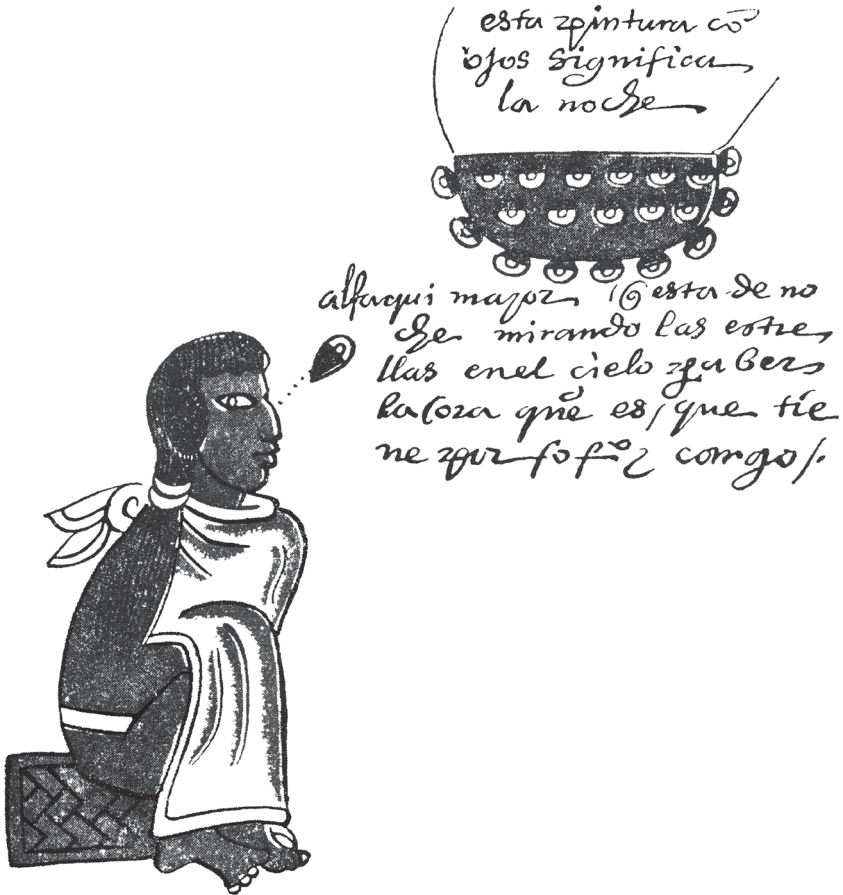 esta pintura cō
ojos significa
la noche
alfaqui mayor q̄ esta de no
che mirando las estre
llas en el cielo para ver
la ora que es, que tie
ne por so fo cargo /.